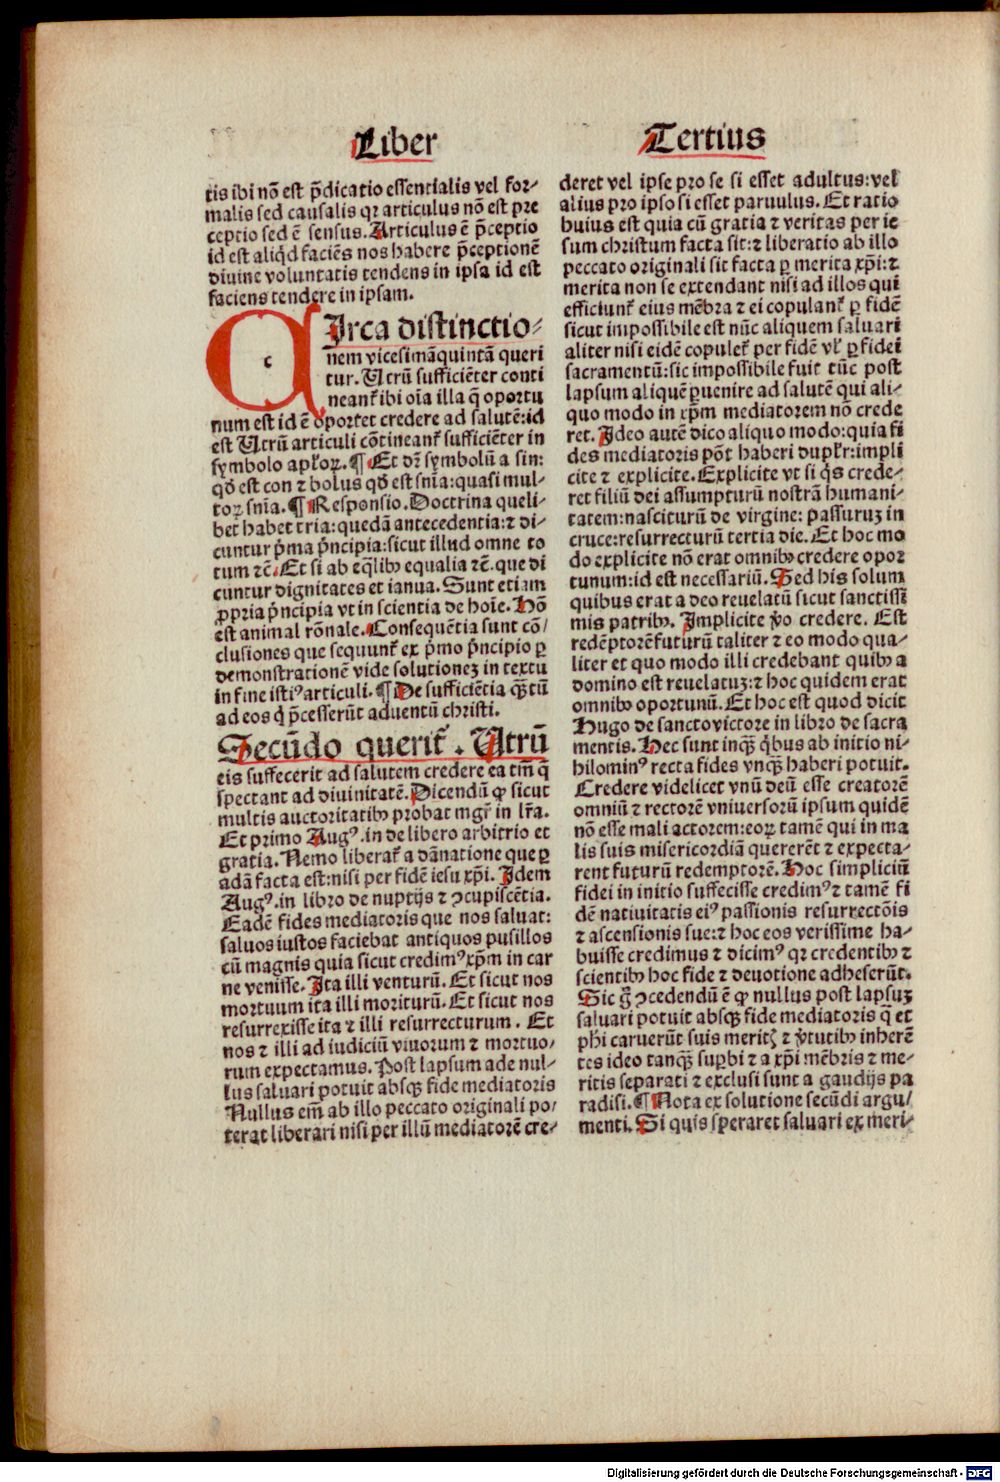 Liber
Tertius
tis ibi nō est p̄dicatio essentialis vel for-
malis sed causalis qꝛ articulus nō est pre
ceptio sed ē sensus. Articulus ē p̄ceptio
id est aliq̇d faciēs nos habere p̄ceptionē
diuine voluntatis tendens in ipsa id est
faciens tendere in ipsam.
CIrca distinctio-
nem vicesimāquintā queri
tur. Utrū sufficiēter conti
neant̄ ibi oīa illa q̄ oportu
num est id ē oportet credere ad salutē: id
est Utrū articuli cōtineant̄ sufficiēter in
symbolo apl̄oꝝ. ¶ Et dꝛ̄ symbolū a sin:
qḋ est con ⁊ bolus qḋ est snīa: quasi mul-
toꝝ snīa. ¶ Responsio. Doctrina queli-
bet habet tria: quedā antecedentia: ⁊ di-
cuntur pͥma pͥncipia: sicut illud omne to
tum ⁊c̄. Et si ab eq̄lib⁹ equalia ⁊c̄. que di
cuntur dignitates et ianua. Sunt etiam
ꝓpria pͥncipia vt in scientia de hoīe. Hō
est animal rōnale. Consequētia sunt cō/
clusiones que sequunt̄ ex pͥmo pͥncipio ꝑ
demonstrationē vide solutionez in textu
in fine isti⁹ articuli. ¶ De sufficiētia qꝫtū
ad eos q̇ p̄cesserūt aduentū christi.
Secūdo querit̄. Utrū
eis suffecerit ad salutem credere ea tm̄ q̄
spectant ad diuinitatē. Dicendū ꝙ sicut
multis auctoritatibꝰ probat mgr̄ in lr̄a.
Et primo Aug⁹. in de libero arbitrio et
gratia. Nemo liberat̄ a dānatione que ꝑ
adā facta est: nisi per fidē iesu xp̄i. Idem
Aug⁹. in libro de nuptijs ⁊ ꝯcupiscētia.
Eadē fides mediatoris que nos saluat:
saluos iustos faciebat antiquos pusillos
cū magnis quia sicut credim⁹ xp̄m in car
ne venisse. Ita illi venturū. Et sicut nos
mortuum ita illi moriturū. Et sicut nos
resurrexisse ita ⁊ illi resurrecturum. Et
nos ⁊ illi ad iudiciū viuorum ⁊ mortuo/
rum expectamus. Post lapsum ade nul-
lus saluari potuit absqꝫ fide mediatoris
Nullus em̄ ab illo peccato originali po/
terat liberari nisi per illū mediatorē cre-
deret vel ipse pro se si esset adultus: vel
alius pro ipso si esset paruulus. Et ratio
huius est quia cū gratia ⁊ veritas per ie
sum christum facta sit: ⁊ liberatio ab illo
peccato originali sit facta ꝑ merita xp̄i: ⁊
merita non se extendant nisi ad illos qui
efficiunt̄ eius mēbra ⁊ ei copulant̄ ꝑ fidē
sicut impossibile est nūc aliquem saluari
aliter nisi eidē copulet̄ per fidē vl̓ ꝑ fidei
sacramentū: sic impossibile fuit tūc post
lapsum aliquē ꝑuenire ad salutē qui ali-
quo modo in xp̄m mediatorem nō crede
ret. Ideo autē dico aliquo modo: quia fi
des mediatoris pōt haberi duplr̄: impli
cite ⁊ explicite. Explicite vt si q̇s crede-
ret filiū dei assumpturū nostrā humani-
tatem: nasciturū de virgine: passuruꝫ in
cruce: resurrecturū tertia die. Et hoc mo
do explicite nō erat omnibꝰ credere opor
tunum: id est necessariū. Sed his solum
quibus erat a deo reuelatū sicut sanctissi
mis patribꝰ. Implicite v̓o credere. Est
redēptorē futurū taliter ⁊ eo modo qua-
liter et quo modo illi credebant quibꝰ a
domino est reuelatuꝫ: ⁊ hoc quidem erat
omnibꝰ oportunū. Et hoc est quod dicit
Hugo de sancto victore in libro de sacra
mentis. Hec sunt inqꝫ q̇bus ab initio ni-
hilomin⁹ recta fides vnqꝫ haberi potuit.
Credere videlicet vnū deū esse creatorē
omniū ⁊ rectorē vniuersorū ipsum quidē
nō esse mali actorem: eoꝝ tamē qui in ma
lis suis misericordiā quererēt ⁊ expecta-
rent futurū redemptorē. Hoc simpliciū
fidei in initio suffecisse credim⁹ ⁊ tamē fi
dē natiuitatis ei⁹ passionis resurrectōis
⁊ ascensionis sue: ⁊ hoc eos verissime ha-
buisse credimus ⁊ dicim⁹ qꝛ credentibꝰ ⁊
scientibꝰ hoc fide ⁊ deuotione adheserūt.
Sic g̊ ꝯcedendū ē ꝙ nullus post lapsuꝫ
saluari potuit absqꝫ fide mediatoris q̄ et
ph̓i caruerūt suis meritꝭ ⁊ v̓tutibꝰ inherē
tes ideo tanqꝫ suꝑbi ⁊ a xp̄i mēbris ⁊ me-
ritis separati ⁊ exclusi sunt a gaudijs pa
radisi. ¶ Nota ex solutione secūdi argu/
menti. Si quis speraret saluari ex meri-
Digitalisierung gefördert durch die Deutsche Forschungsgemeinschaft - DFG